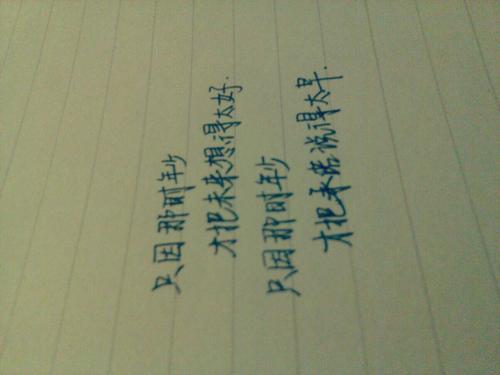 只因那时年少
才把未来想得太好.
只因那时年少
才把承诺说得太早.